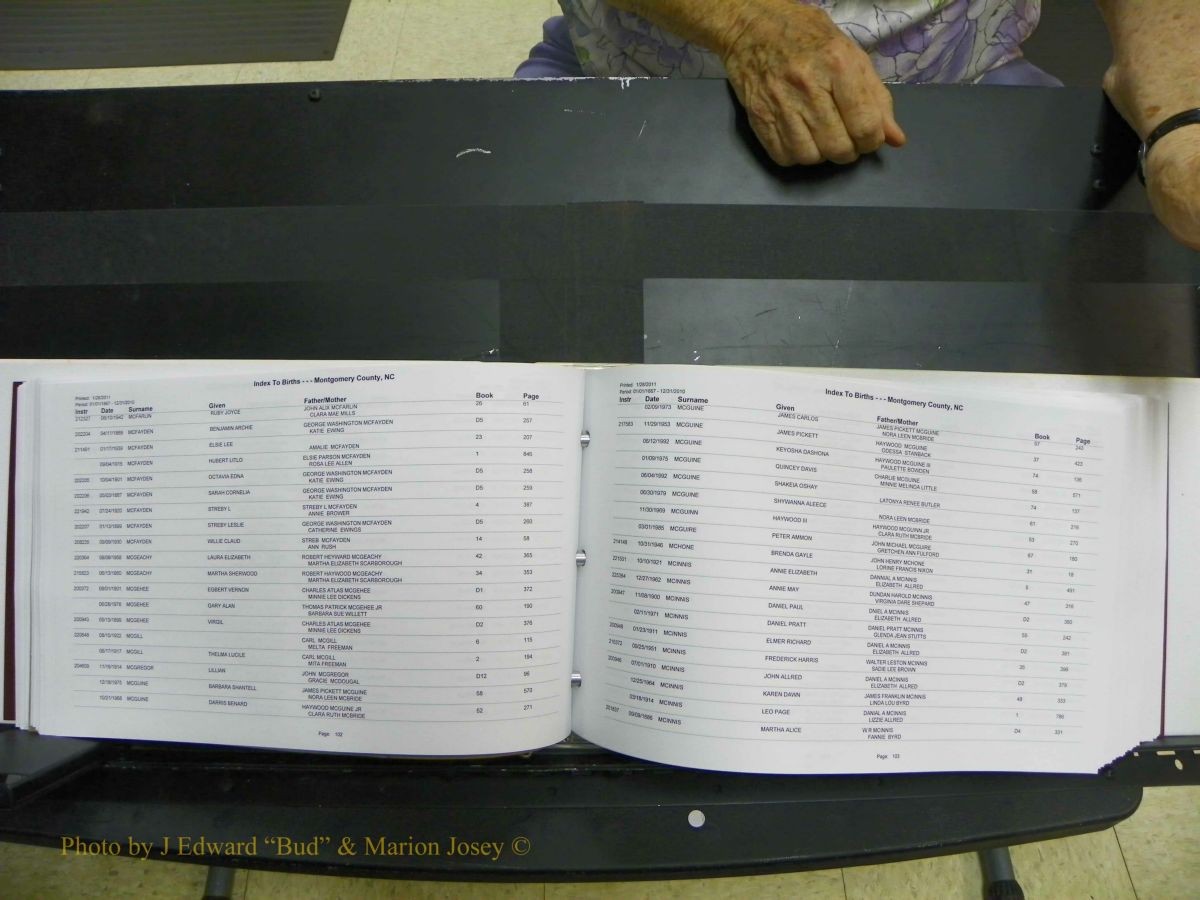 Printed: 1/28/2011
Period: 01/01/1887 - 12/31/2010
Index To Births - - - Montgomery County, NC
Instr Date Surname Given Father/Mother Book Page
MCFARLIN RUBY JOYCE JOHN ALIX MCFARLIN 26 61
CLARA MAE MILLS
MCFAYDEN BENJAMIN ARCHIE GEORGE WASHINGTON MCFAYDEN D5 257
KATIE EWING
MCFAYDEN ELSIE LEE 23 207
AMALIE MCFAYDEN
MCFAYDEN HUBERT LITLO ELSIE PARSON MCFAYDEN 1 845
ROSA LEE ALLEN
MCFAYDEN OCTAVIA EDNA GEORGE WASHINGTON MCFAYDEN D5 258
KATIE EWING
MCFAYDEN SARAH CORNELIA GEORGE WASHINGTON MCFAYDEN D5 259
KATIE EWING
MCFAYDEN STREBY L STREBY L MCFAYDEN 4 387
ANNIE BROWER
MCFAYDEN STREBY LESLIE GEORGE WASHINGTON MCFAYDEN D5 260
CATHERINE EWINGS
MCFAYDEN WILLIE CLAUD STREB MCFAYDEN 14 58
ANN RUSH
MCGEACHY LAURA ELIZABETH ROBERT HEYWARD MCGEACHY 42 365
MARTHA ELIZABETH SCARBOROUGH
MCGEACHY MARTHA SHERWOOD ROBERT HAYWOOD MCGEACHY 34 353
MARTHA ELIZABETH SCARBOROUGH
MCGEHEE EGBERT VERNON CHARLES ATLAS MCGEHEE D1 372
MINNIE LEE DICKENS
MCGEHEE GARY ALAN THOMAS PATRICK MCGEHEE JR 60 190
BARBARA SUE WILLETT
MCGEHEE VIRGIL CHARLES ATLAS MCGEHEE D2 376
MINNIE LEE DICKENS
MCGILL CARL MCGILL 6 115
MELTA FREEMAN
MCGILL THELMA LUCILE CARL MCGILL 2 184
MITA FREEMAN
MCGREGOR LILLIAN JOHN MCGREGOR D12 96
GRACIE MCDOUGAL
MCGUINE BARBARA SHANTELL JAMES PICKETT MCGUINE 58 570
NORA LEEN MCBRIDE
MCGUINE DARRIS BENARD HAYWOOD MCGUINE JR 52 271
CLARA RUTH MCBRIDE
Page: 102
Printed: 1/28/2011
Period: 01/01/1887 - 12/31/2010
Index To Births - - - Montgomery County, NC
Instr Date Surname Given Father/Mother Book Page
02/09/1973 MCGUINE JAMES CARLOS JAMES PICKETT MCGUINE 57 243
NORA LEEN MCBRIDE
217583 11/29/1953 MCGUINE JAMES PICKETT HAYWOOD MCGUINE 37 423
ODESSA STANBACK
06/12/1992 MCGUINE KEYOSHA DASHONA HAYWOOD MCGUINE III 74 136
PAULETTE BOWDEN
01/09/1975 MCGUINE QUINCEY DAVIS CHARLIE MCGUINE 58 571
MINNIE MELINDA LITTLE
06/04/1992 MCGUINE SHAKEIA OSHAY 74 137
LATONYA RENEE BUTLER
06/30/1979 MCGUINE SHYWANNA ALEECE 61 216
NORA LEEN MCBRIDE
11/30/1969 MCGUINN HAYWOOD III HAYWOOD MCGUINN JR 53 270
CLARA RUTH MCBRIDE
03/01/1985 MCGUIRE PETER AMMON JOHN MICHAEL MCGUIRE 67 180
GRETCHEN ANN FULFORD
214148 10/31/1946 MCHONE BRENDA GAYLE JOHN HENRY MCHONE 31 18
LORINE FRANCIS NIXON
221551 10/10/1921 MCINNIS ANNIE ELIZABETH DANNIAL A MCINNIS 5 491
ELIZABETH ALLRED
12/27/1962 MCINNIS ANNIE MAY DUNDAN HAROLD MCINNIS 47 316
VIRGINIA DARE SHEPARD
200947 11/08/1900 MCINNIS DANIEL PAUL DNIEL A MCINNIS D2 380
ELIZABETH ALLRED
02/11/1971 MCINNIS DANIEL PRATT DANIEL PRATT MCINNIS 55 242
GLENDA JEAN STUTTS
200948 01/23/1911 MCINNIS ELMER RICHARD DANIEL A MCINNIS D2 381
ELIZABETH ALLRED
MCINNIS FREDERICK HARRIS WALTER LESTON MCINNIS 35 399
SADIE LEE BROWN
200946 07/01/1910 MCINNIS JOHN ALLRED DANIEL A MCINNIS D2 379
ELIZABETH ALLRED
12/25/1964 MCINNIS KAREN DAWN JAMES FRANKLIN MCINNIS 49 333
LINDA LOU BYRD
MCINNIS LEO PAGE DANIAL A MCINNIS 1 786
LIZZIE ALLRED
MCINNIS MARTHA ALICE W R MCINNIS D4 331
FANNIE BYRD
Page: 103
Photo by J Edward “Bud” & Marion Josey ©